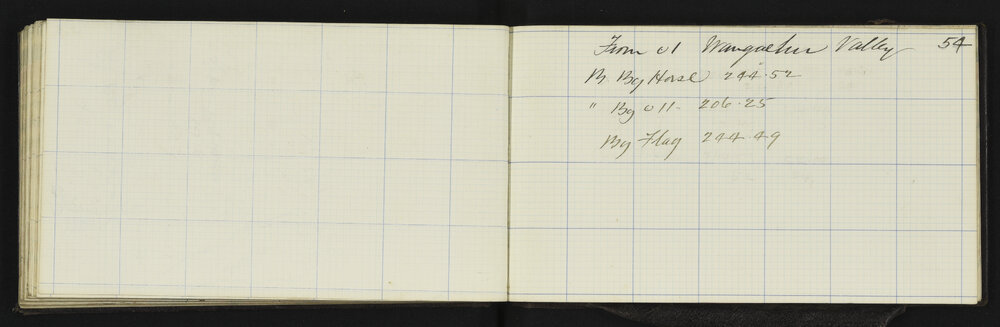 From 01 Wangaehu Valley 54
B By Horse 244.52
" By 011 - 206.25
By Flag 244.49